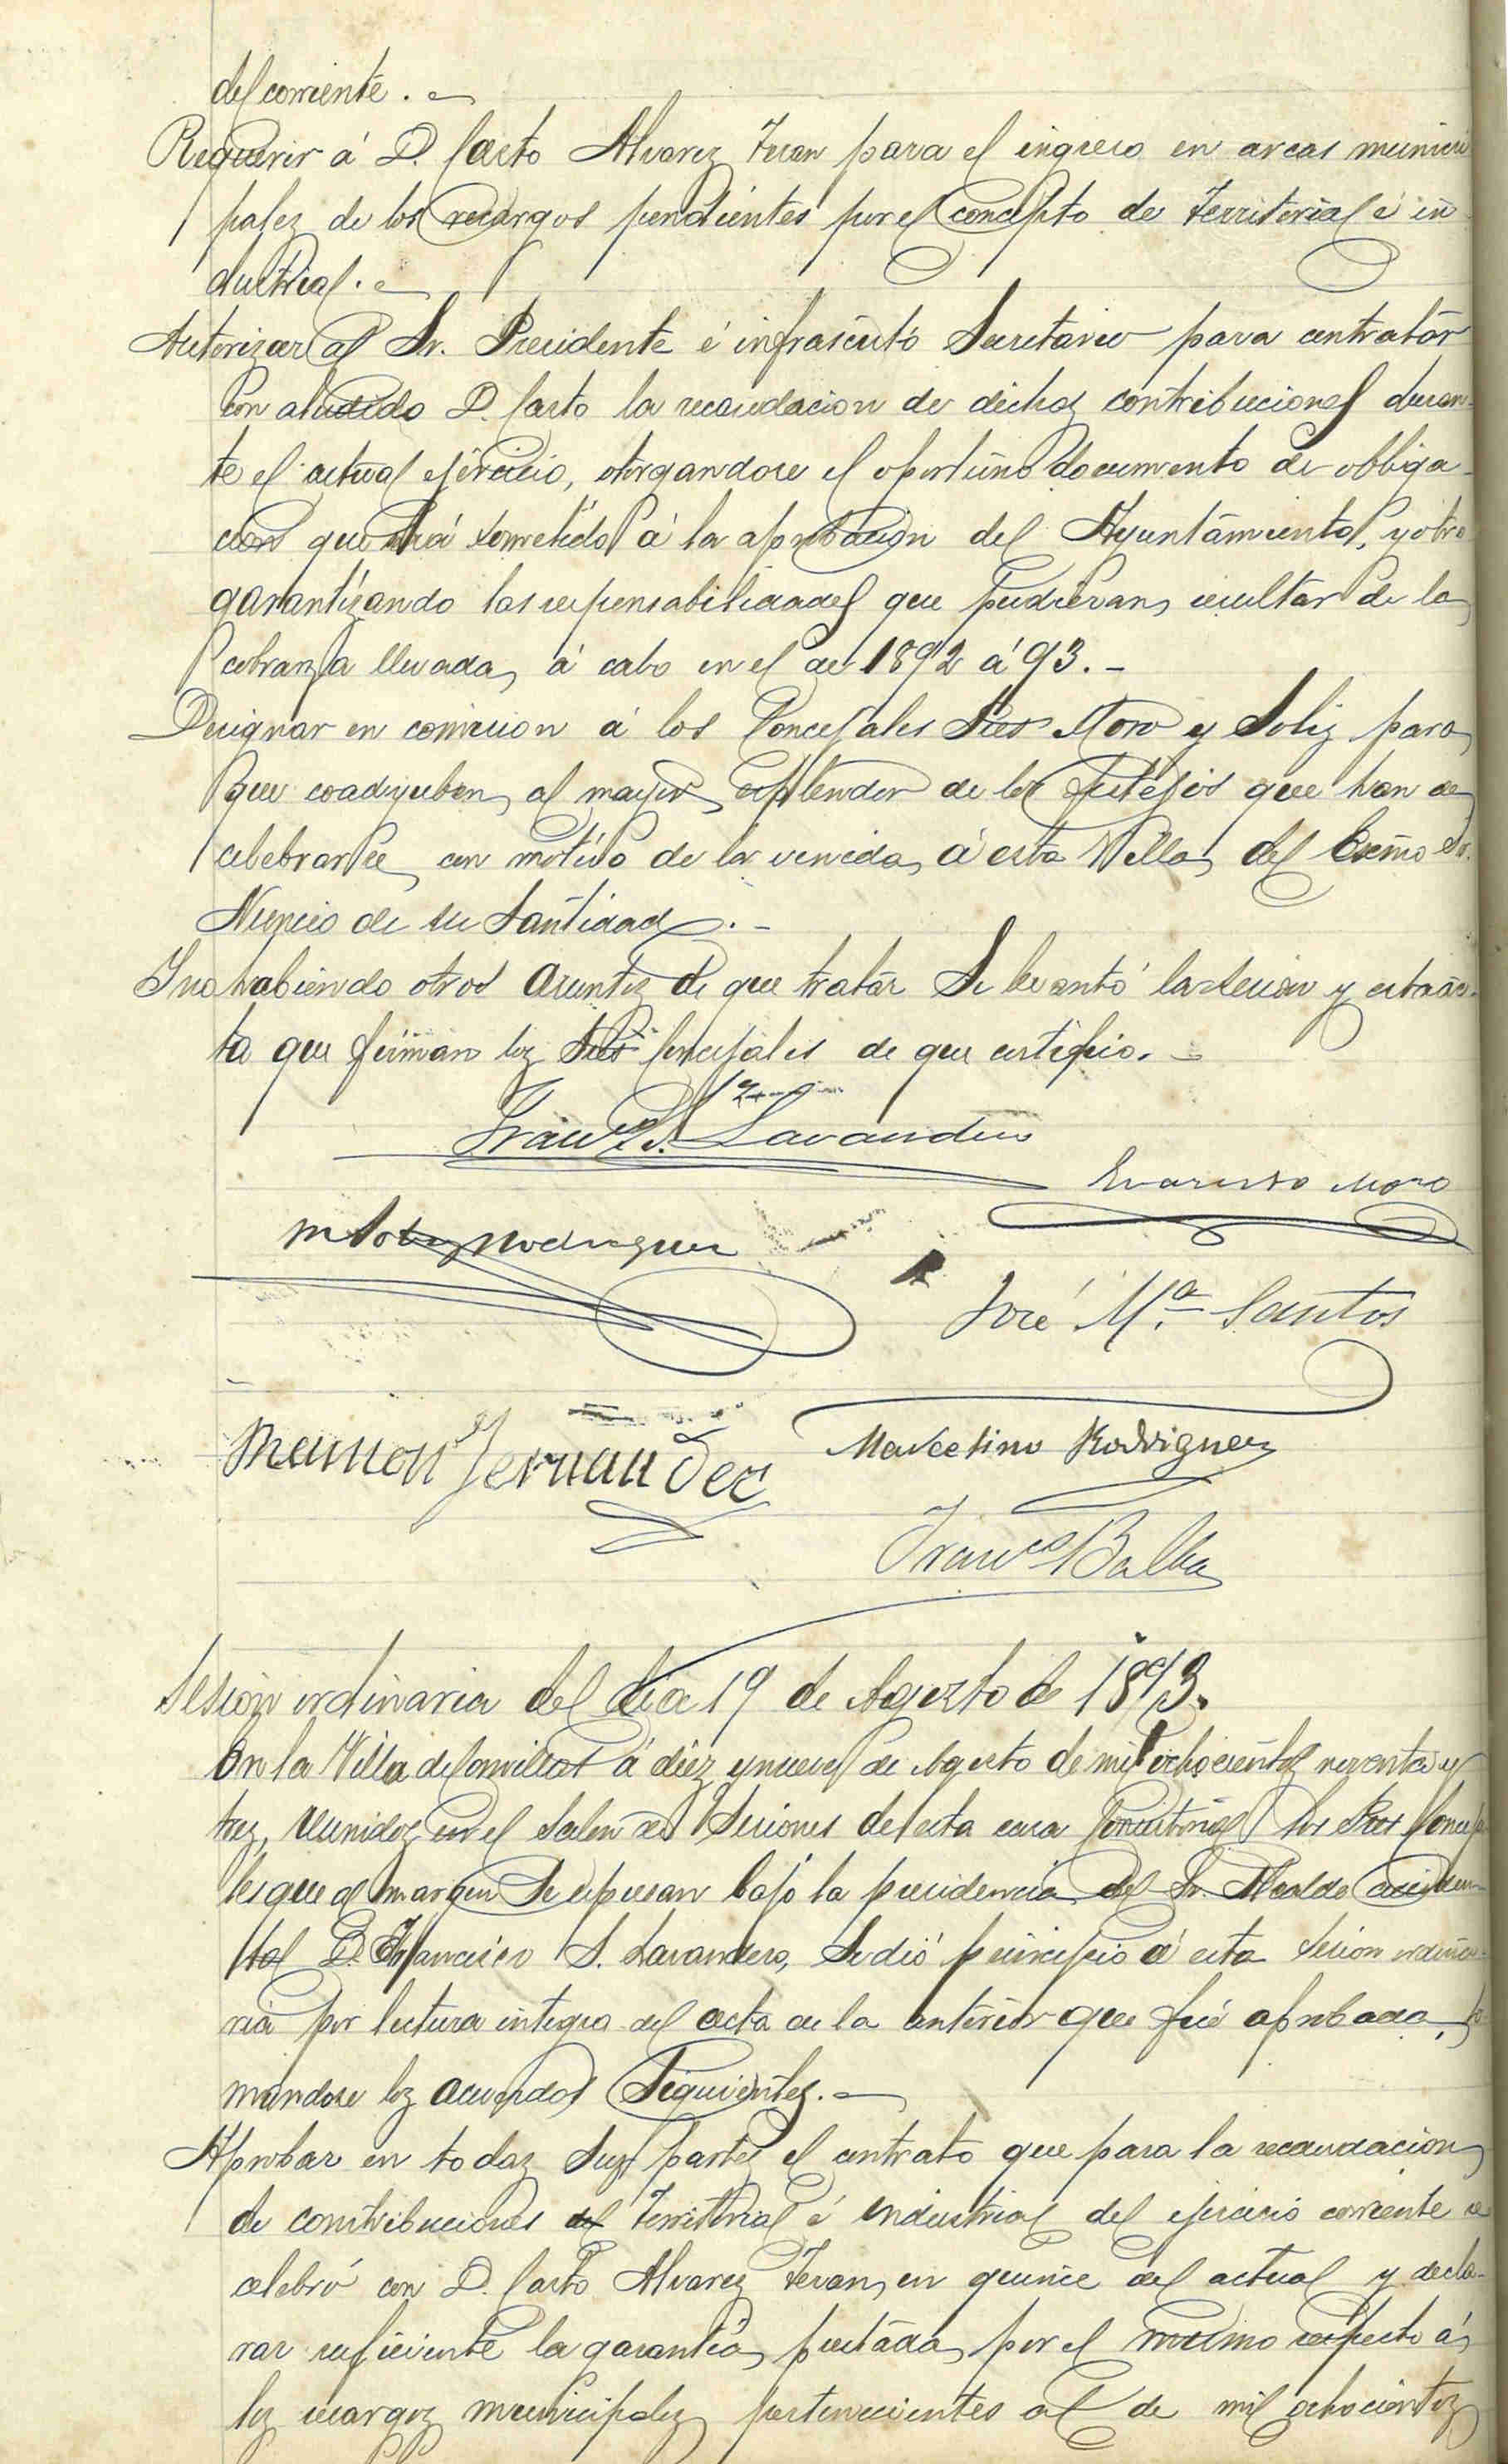 del corriente.
Requerir á D. Casto Alvarez Teran para el ingreso en arcas munici
pales de los recargos pendientes por el concepto de territorial é in
dustrial.
Autorizar al Sr. Presidente é infrascrito Secretario para contratar
con aludido D. Casto la recaudacion de dichas contribuciones duran-
te el actual ejercicio, otorgandose el oportuno documento de obliga-
cion que será sometido á la aprobacion del Ayuntamiento, y otro
garantizando las responsabilidades que pudieran resultar de la
cobranza llevada á cabo en el de 1892 á 93.-
Designar en comision á los Concejales Sres Moro y Soliz para
que coadyuben al mayor esplendor de los festejos que han de
celebrarse con motivo de la venida á esta Villa del Excmo Sr.
Nuncio de su Santidad.-
Y no habiendo otros asuntos de que tratar se levantó la sesion y esta ac-
ta que firman los Sres Concejales de que certifico.
Franco S. Lavandero
Evaristo Moro
Rodriguez
José Ma. Santos
Ramon Fernandez
Marcelino Rodriguez
Franco Balba
Sesion ordinaria del dia 19 de Agosto de 1893.
En la Villa de Comillas á diez y nueve de Agosto de mil ochocientos noventa y
tres, reunidos en el Salon de Sesiones de esta casa Consistorial los Sres Conceja
les que al margen se expresan bajo la presidencia del Sr. Alcalde acciden-
tal D. Francisco S. Lavandero, se dió principio á esta sesion ordina-
ria por lectura integra del acta de la anterior que fué aprobada, to-
mandose los acuerdos siguientes.-
Aprobar en todas sus partes el contrato que para la recaudacion
de contribuciones de territorial é industrial del ejercicio corriente se
celebró con D. Casto Alvarez Teran, en quince del actual y decla-
rar suficiente la garantía prestada por el mismo respecto á
los recargos municipales pertenecientes al de mil ochocientos